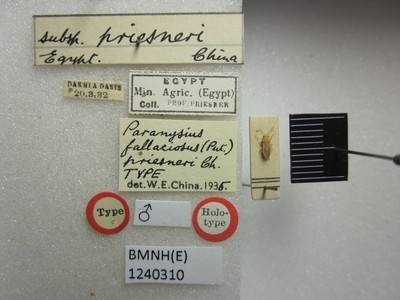 subsp. priesneri
Egypt. China
DAKHLA OASIS
20.3.32
EGYPT
Min. Agric. (Egypt)
Coll. PROF. PRIESNER
Paranysius
fallaciosus (Put.)
priesneri Ch.
TYPE
det. W.E. China. 1936.
Type
♂
Holo-
type
BMNH(E)
1240310